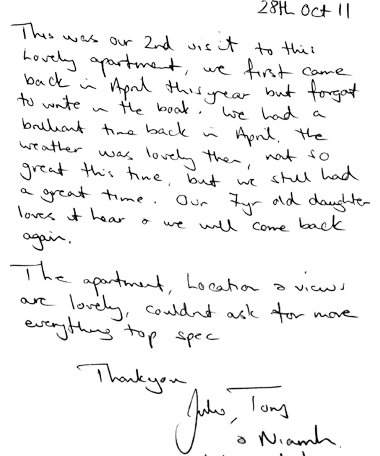 28th Oct 11
This was our 2nd visit to this
Lovely apartment, we first came
back in April this year but forgot
to write in the book. We had a
brilliant time back in April, the
weather was lovely then, not so
great this time, but we still had
a great time. Our 7yr old daughter
loves it hear & we will come back
again.
The apartment, Location & views
are lovely, couldnt ask for more
everything top spec
Thankyou
Tony
& Niamh